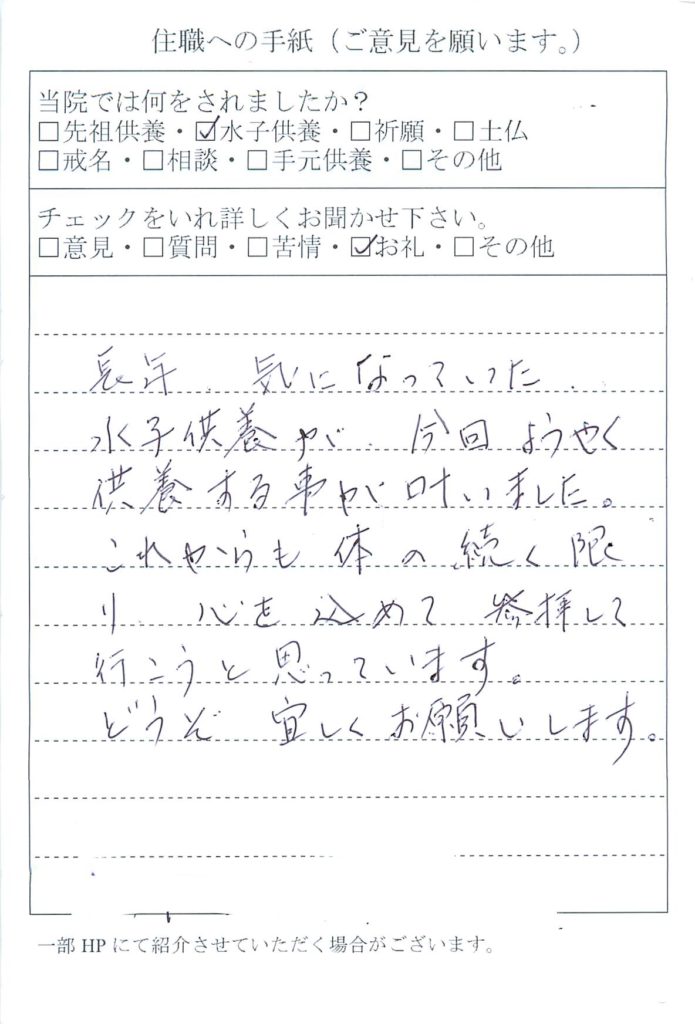 住職への手紙（ご意見を願います。）
当院では何をされましたか？
□先祖供養・☑水子供養・□祈願・□土仏
□戒名・□相談・□手元供養・□その他
チェックをいれ詳しくお聞かせ下さい。
□意見・□質問・□苦情・☑お礼・□その他
長年、気になっていた、
水子供養が、今回ようやく
供養する事が叶いました。
これからも体の続く限
り、心を込めて参拝して
行こうと思っています。
どうぞ宜しくお願いします。
一部HPにて紹介させていただく場合がございます。